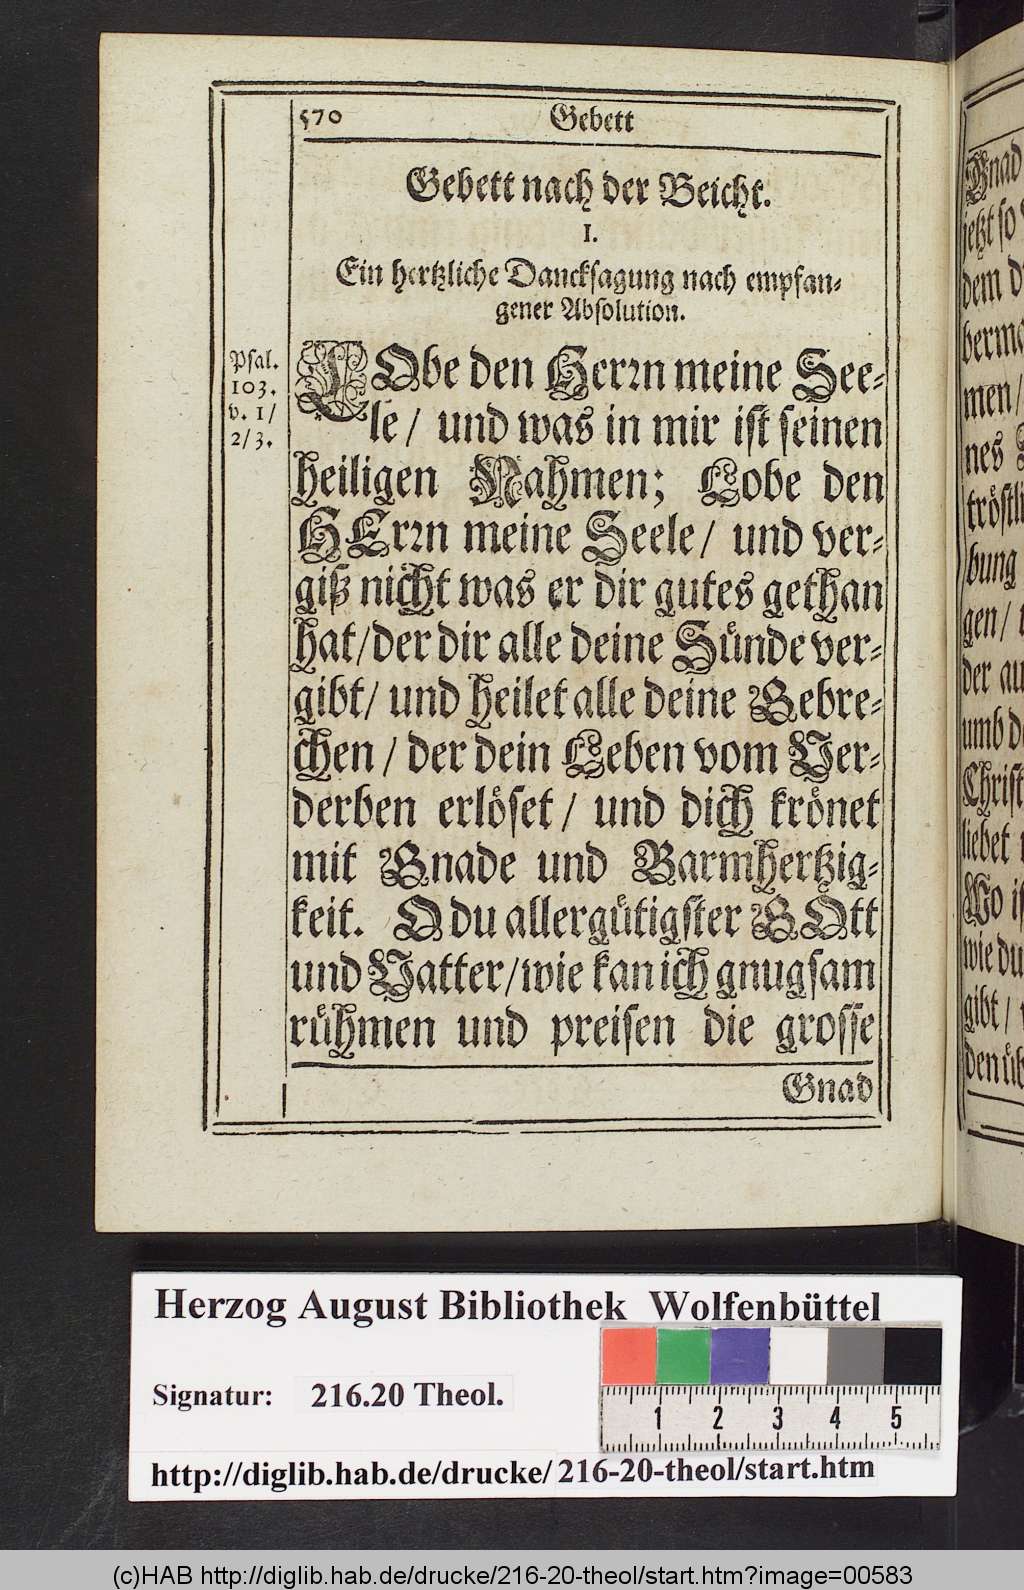 570 Gebett
Gebett nach der Beicht.
I.
Ein hertzliche Dancksagung nach empfan-
gener Absolution.
Psal.
103.
v. 1/
2/3.
LObe den Herrn meine See-
le / und was in mir ist seinen
heiligen Nahmen; Lobe den
HErrn meine Seele / und ver-
giß nicht was er dir gutes gethan
hat / der dir alle deine Sünde ver-
gibt / und heilet alle deine Gebre-
chen / der dein Leben vom Ver-
derben erlöset / und dich krönet
mit Gnade und Barmhertzig-
keit. O du allergütigster GOtt
und Vatter / wie kan ich gnugsam
rühmen und preisen die grosse
Gnad
Gnad
jetzt so
dem
berme
men /
nes
tröstli
bung
gen /
der au
umb
Christ
liebet
Wo
wie du
gibt /
den
Herzog August Bibliothek Wolfenbüttel
Signatur: 216.20 Theol.
1 2 3 4 5
http://diglib.hab.de/drucke/216-20-theol/start.htm
(c)HAB http://diglib.hab.de/drucke/216-20-theol/start.htm?image=00583